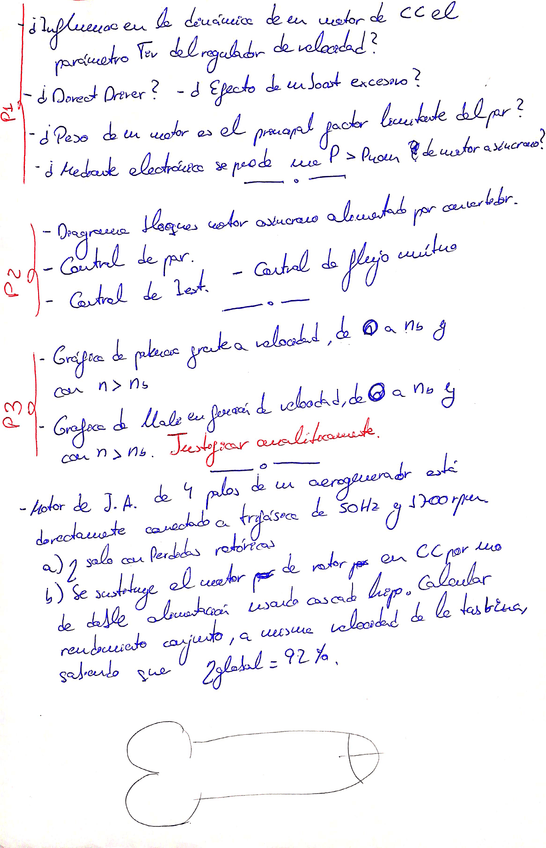 P1
- ¿Influencia en la dinámica de en motor de CC el
parámetro Tiv del regulador de velocidad?
- ¿Direct Driver? - ¿Efecto de un Isext excesivo?
- ¿Peso de un motor es el principal factor limitante del par?
- ¿Mediante electrónica se puede una P > Pnom de motor asíncrono?
P2
- Diagrama bloques motor asíncrono alimentado por convertidor.
- Control de par. - Control de flujo mútuo
- Control de Iest.
P3
- Gráfica de potencia frente a velocidad, de 0 a nb y
con n > nb
- Grafica de Malé en función de velocidad, de 0 a nb y
con n > nb. Justificar analíticamente.
- Motor de J.A. de 4 polos de un aerogenerador está
directamente conectado a trifásica de 50Hz y 1700rpm
a) η solo con Perdidas rotóricas
b) Se sustituye el motor de rotor en CC por uno
de doble alimentación usando cascada hipo. Calcular
rendimiento conjunto, a misma velocidad de la turbina,
sabiendo que ηglobal = 92 %.